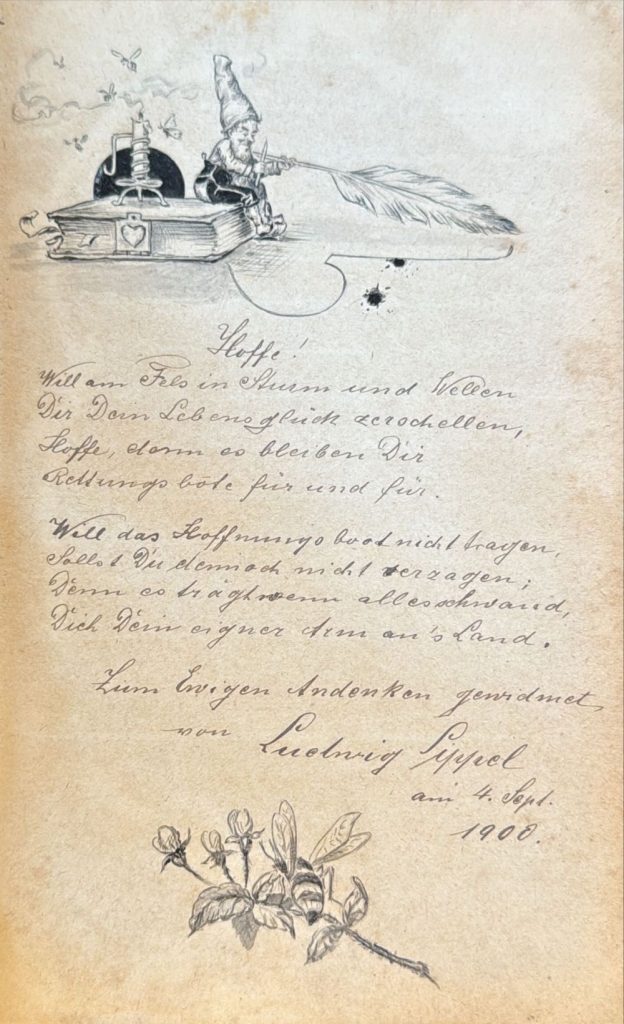 Hoffe!
Will am Fels in Sturm und Wellen
Dir Dein Lebensglück zerschellen,
Hoffe, denn es bleiben Dir
Rettungsböte für und für.
Will das Hoffnungsboot nicht tragen,
Sollst Du dennoch nicht verzagen;
Denn es trägt wenn alles schwand,
Dich Dein eigner Arm an's Land.
Zum Ewigen Andenken gewidmet
von Ludwig Lippel
am 4. Sept.
1900.